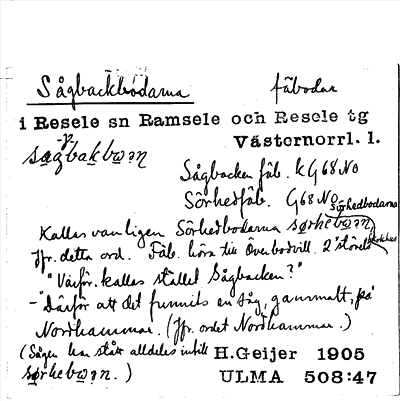 Sågbackbodarna fäbodar
i Resele sn Ramsele och Resele tg
Västernorrl. l.
Sågbacken fäb. k G 68 NO
Sörhedfäb. G 68 NO
Sörhedbodarna
Kallas vanligen Sörhedbodarna
Jfr. detta ord. Fäb. höra till Överbodvill. 2 störels
"Varför kallas stället Sågbacken?"
- "Därför att det funnits en såg, gammalt, på
Nordhammar. (Jfr. ordet Nordhammar.)
(Sågen har stått alldeles intill H.Geijer 1905
ULMA 508:47